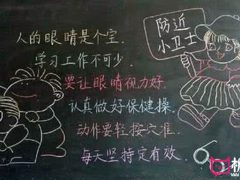 人的眼睛是个宝，
学习工作不可少。
要让眼睛视力好，
认真做好保健操。
动作要轻按穴准，
每天坚持定有效。
防近
小卫士